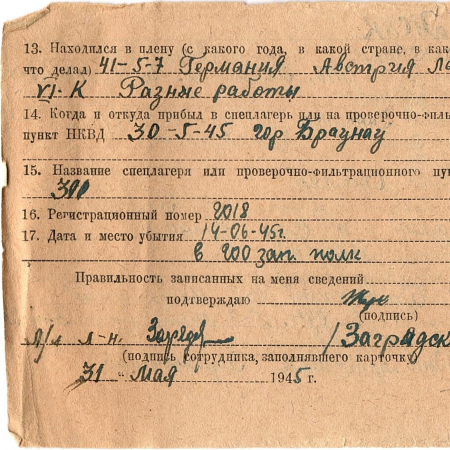 13. Находился в плену (с какого года, в какой стране, в как
что делал) 41-5-7 Германия Австрия Ла
VI-К Разные работы
14. Когда и откуда прибыл в спецлагерь или на проверочно-филь
пункт НКВД 30-5-45 гор Браунау
15. Название спецлагеря или проверочно-фильтрационного пун
300
16. Регистрационный номер 2018
17. Дата и место убытия 14-06-45г
в 200 зап. полк
Правильность записанных на меня сведений
подтверждаю
(подпись)
/Заградск
(подпись сотрудника, заполнявшего карточку
„31" Мая 1945 г.